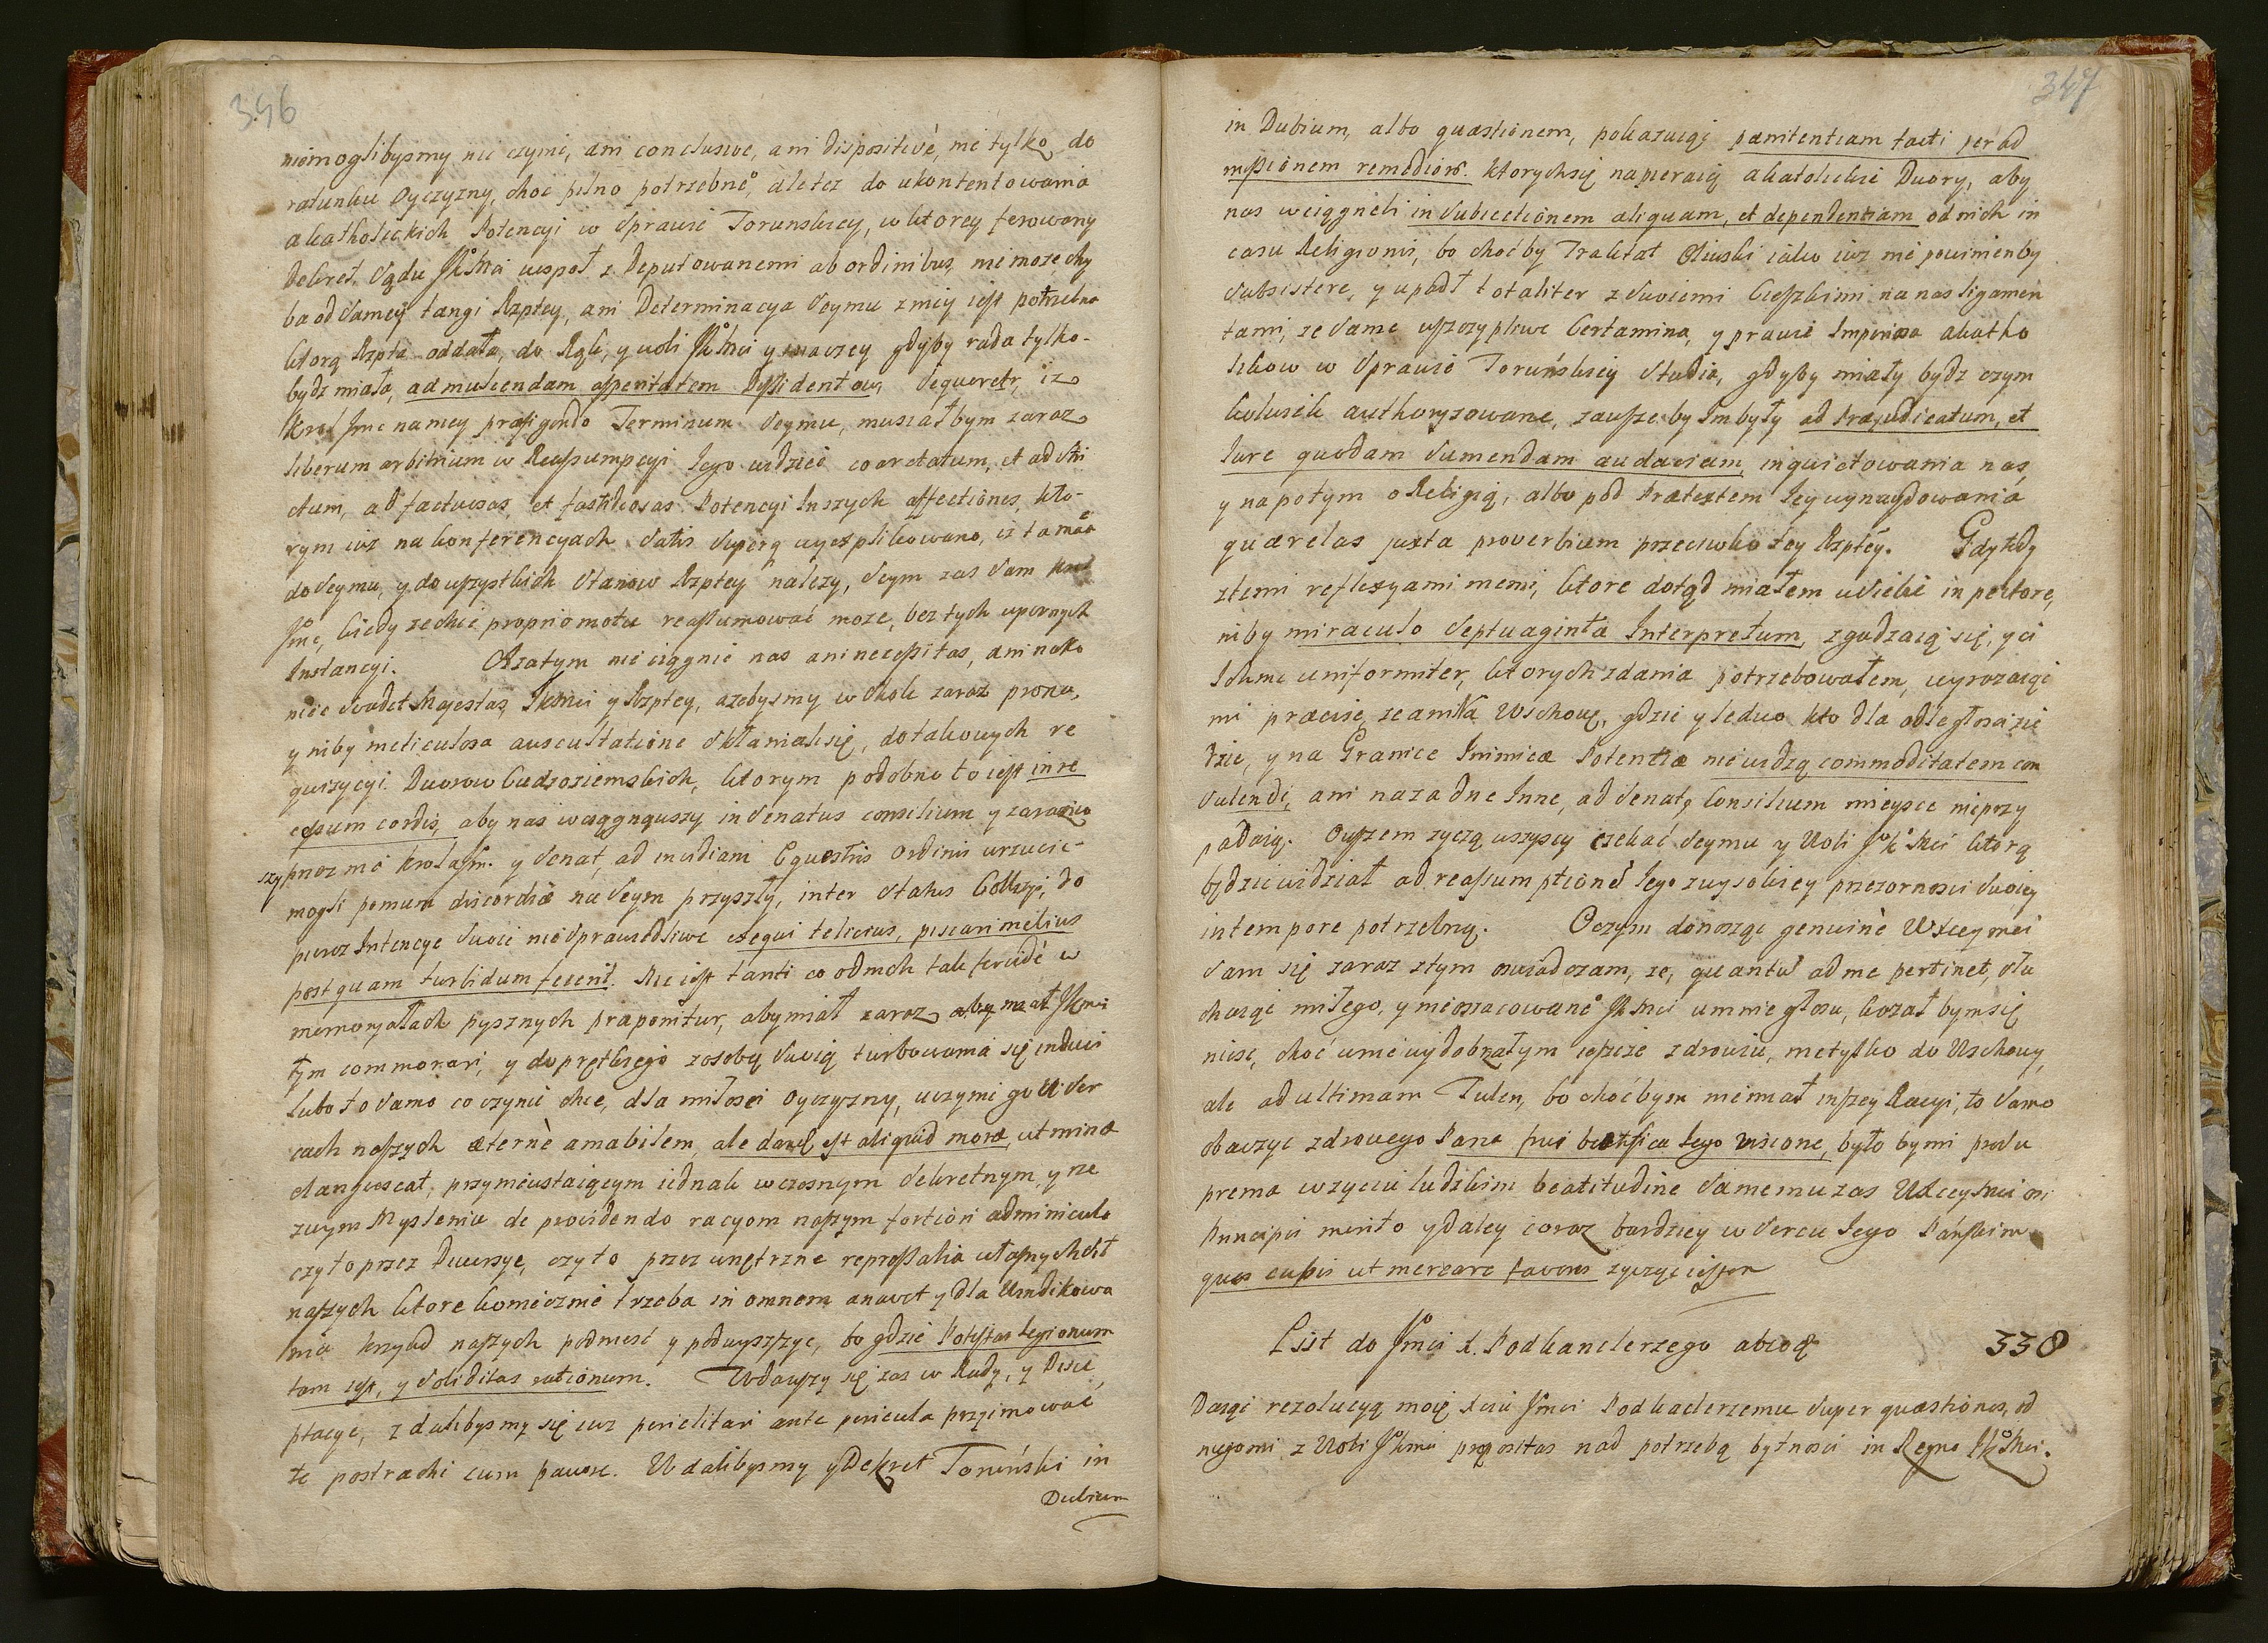 346
niemoglibysmy nic czynic, ani conclusive, ani dispositivè, nie tylko do
ratunku Oyczyzny, choc pilno potrzebne°, ale tez do ukontentowania
akatholickich Potencyi w Sprawie Torunskiey, w ktorey ferowany
Dekret Sądu JKMci wespoł z Deputowanemi ab ordinibus, nie moze chy
ba od Samey tangi Rzptey, ani Determinacya Seymu z niey iest potrzebna
ktorą Rzpta oddała, do Rąk, y woli JKMci y inaczey gdyby rada tylko
bydz miała, ad mulcendam asperitatem Dissidentow, Sequeretr, iz
Krol Jmc na niey præfigendo Terminum Seymu, musiałbym zaraz
liberum arbitrium w Reassumpcyi Jego widziec coarctatum, et adstri
ctum, ad factuosas et fastidiosas Potencyi Inszych affectiones, kto-
rym iuz na konferencyach Satis Superq wyexplikowano, iz ta ma°
do Seymu, y do wszystkich Stanow Rzptey nalezy, Seym zas Sam Krol
Jmc, kiedy zechce proprio motu reassumować moze, bez tych upornych
Instancyi. Azatym nie ciągnie nas ani necessitas, ani nako
niec Svadet Majestas JKMci y Rzptey, azebysmy w Skok zaraz prona,
y niby meticulosa auscultatione Skłaniali się, do takowych re
quizycyi Dworow Cudzoziemskich, ktorym podobno to iest in re
cessum cordis, aby nas wciągnąwszy in Senatus consilium y zaraziw
szy przez nie Krola Jm. y Senat, ad invidiam Equestris Ordinis wrzucic
mogli pomum discordiæ na Seym przyszły, inter Status Colligi, do
pieroz Intencye Swoie niesprawiedliwe exequi felicius, piscari melius
postquam turbidum fecerit. Nie iest tanti co od nich tak fervidè w
memoryałach pysznych præponitur, aby miał zaraz JKMci
tym commorari, y do prętkiego zosobą Swoią turbowania się induci
lubo to Samo co czynic chce, dla miłosci Oyczyzny, uczyni go w Ser
cach naszych æternè amabilem, ale danda est aliquid moræ, ut minæ
clangvescat, przymieustaiącym iednak wczesnym Sekretnym, y re
zwym Mysleniu de providendo racyom naszym fortiori adminiculo
czyto przez Dwersye, czyto przez wnętrzne repressalia własnych sił
naszych ktore koniecznie trzeba in omnem anavet y dla Windikowa
nia krzywd naszych podniesć y podwyszszyc, bo gdzie Potestas legionum
tam iest, y Soliditas rationum. Wdawszy się zas w Rady, y Disce
ptacye, zdalibysmy się iuz periclitari ante pericula przyimować
te postrachi cum pavore. Wdalibysmy y Dekret Torunski in
Dubium
347
in Dubium, albo quæstionem, pokazuiąc pænitentiam facti per ad
missionem remediors. ktorych się napieraią akatolickie Dwory, aby
nas wciągneli in Subiectionem aliquam, et dependentiam od nich in
casu Religionis, bo choćby Traktat Oliwski iako iuz nie powinienby
Subsistere, y upadł totaliter z Swoiemi Cięszkimi na nas ligamen
tami, ze Same uszczypliwe Certamina, y prawie Imperiosa akatho
likow w Sprawie Toruńskiey Studia, gdyby miały bydz czym
kolwiek authoryzowane, zawszeby Im były ad præjudicatum, et
Iure quodam Sumendam audaciam, inquietowania nas,
y na potym o Religią, albo pod Prætextem Jey wynaydowania
quærelas juxta proverbium przeciwko tey Rzptey. Gdy tedy
z temi reflexyami memi, ktore dotąd miałem u Siebie in pectore,
niby miraculo Septuaginta Interpretum, zgadzaią się, y ci
Ichmc uniformiter, ktorych zdania potrzebowałem, wyrazaiąc
mi præcise, ze ani Na Wschowę, gdzie y ledwo kto dla odległosci zie
dzie, y na Granice Inimicæ Potentiæ nie widzą commoditatem con
Sulendi, ani naza dne Inne, ad Senatq Consilium mieysce nie przy
padaią. Owszem zyczą wszyscy czekać Seymu y Woli JKMci ktorą
będzie widział ad reassumptione Jego z wysokiey przezornosci Swoiey
in tempore potrzebną. O czym donosząc genuinè WXceyMci
Sam się zaraz z tym oswiadczam, ze, quantu ad me pertinet, słu
chaiąc miłego, y nieoszacowane° JKMci u mnie głosu, kazał bym się
niesc, choć w nie wydobrzałym ieszcze zdrowiu, nietylko do Wschowy,
ale ad ultimam Tulen, bo choćbym nie miał inszey Racyi, to Samo
obaczyc zdrowego Pana frui beatifica Jego visione, było by mi pro Su
prema w zyciu ludzkim beatitudine Samemu zas WXceyMci oni
Principis merito y daley coraz bardziey w Sercu Jego Pańskim
quos cupis ut mereare favores zyczyc iestem
List do Jmci X. Podkanclerzego abcoq 338
Daiąc rezolucyą moię Xciu Jmci Podkaclerzemu Super quæstiones, od
niegomi z Woli JKMci præpositas nad potrzebą bytnosci in Regno JKMci.